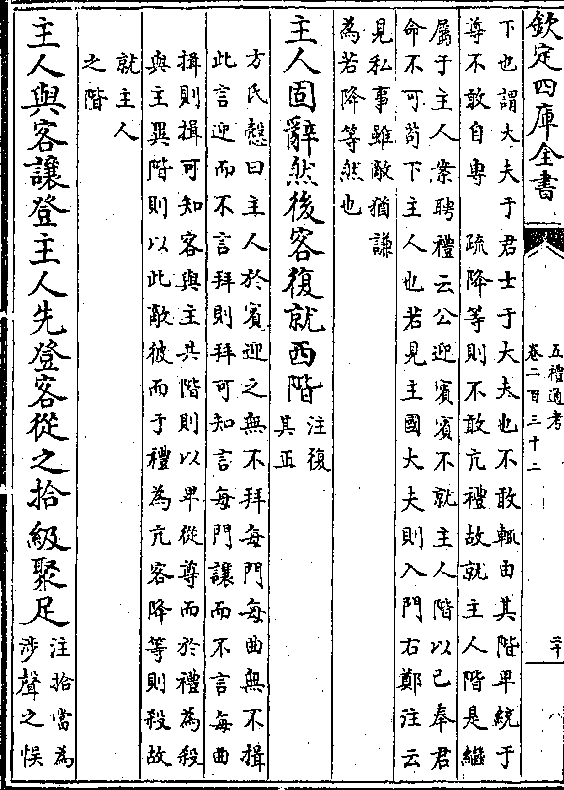 欽定四庫全書
五禮通考
卷二百三十二
二十
八
下也謂大夫于君士于大夫也不敢輒由其階卑統于
尊不敢自專 疏降等則不敢亢禮故就主人階是繼
屬于主人案聘禮云公迎賓賓不就主人階以已奉君
命不可苟下主人也若見主國大夫則入門右鄭注云
見私事雖敵猶謙
為若降等然也
主人固辭然後客復就西階注復
其正
方氏慤曰主人於賓迎之無不拜每門每曲無不揖
此言迎而不言拜則拜可知言每門讓而不言每曲
揖則揖可知客與主共階則以卑從尊而於禮為殺
與主異階則以此敵彼而于禮為亢客降等則殺故
就主人
之階
主人與客讓登主人先登客從之拾級聚足注拾當為
涉聲之悮